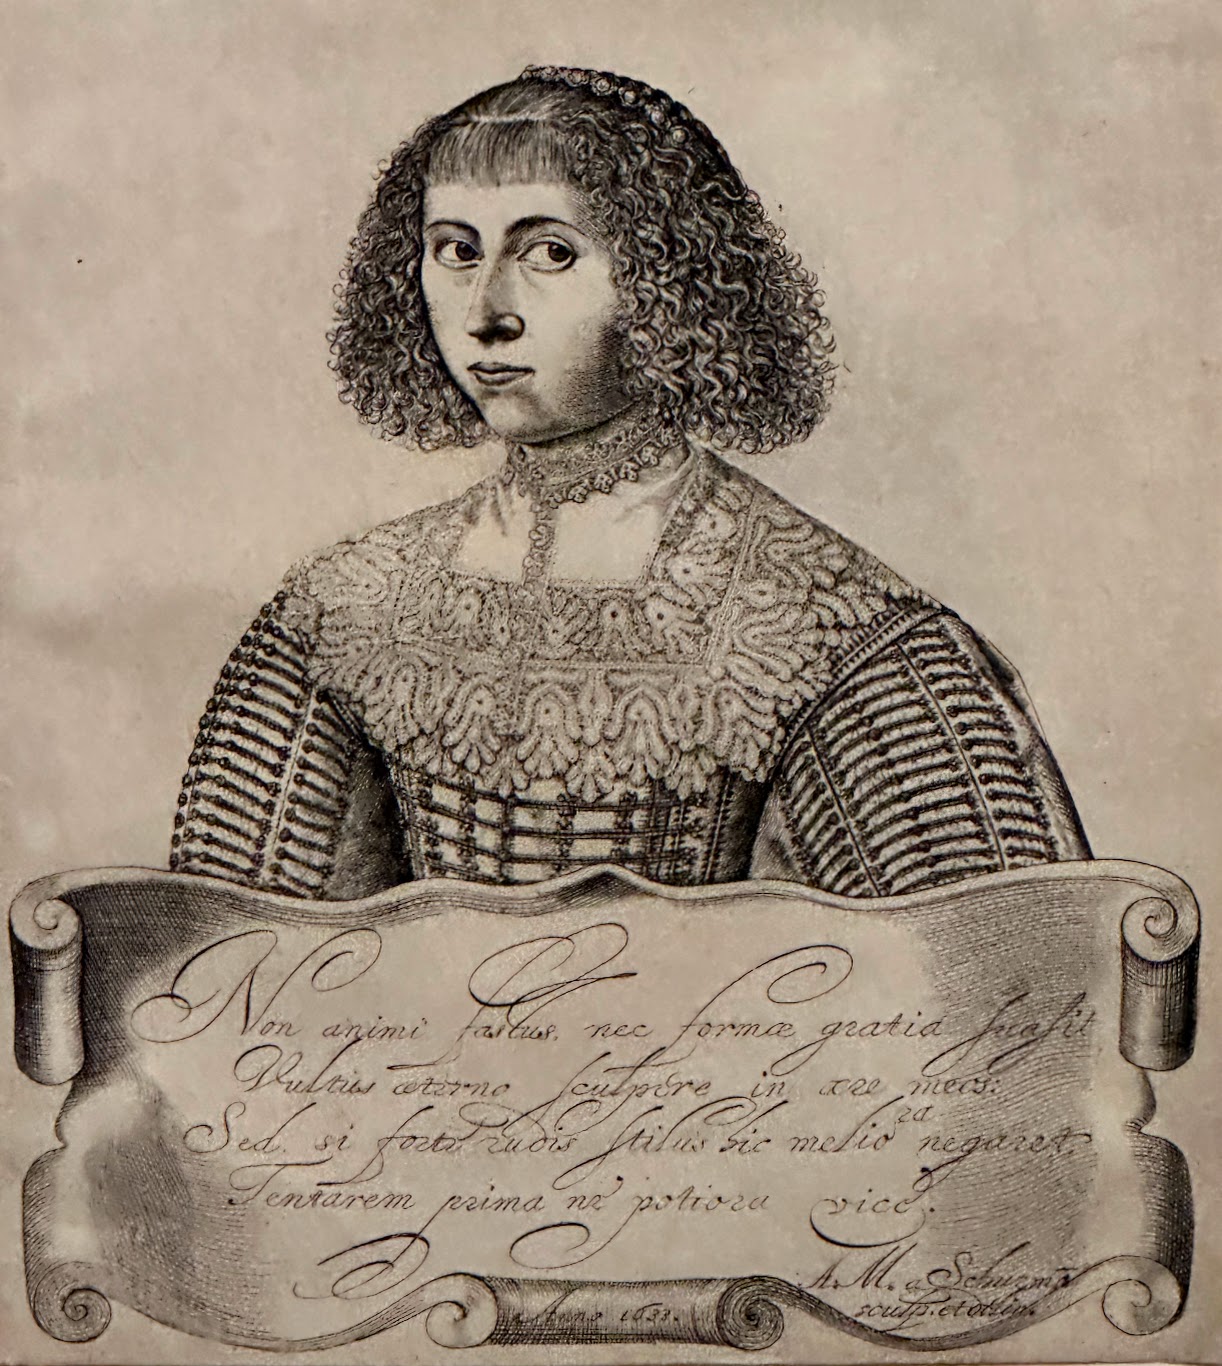 Non animi fastus, nec formæ gratia suasit
Vultus æterno sculpere in ære meos:
Sed, si forte rudis stilus hic meliora negaret,
Tentarem prima ne potiora vice.
A. M. a Schurmā
sculp. et delin.
Anno 1633.